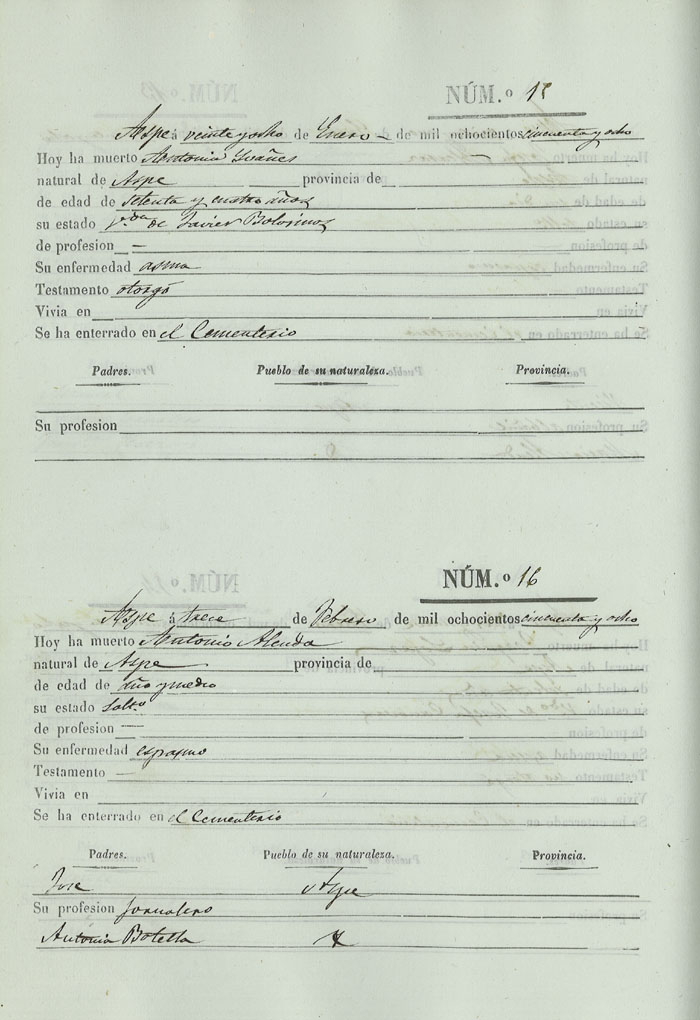 NÚM.º 15
Aspe á veinte y ocho de Enero de mil ochocientos cincuenta y ocho
Hoy ha muerto Antonia Yvañes
natural de Aspe provincia de
de edad de Setenta y cuatro años
su estado V.da de Javier
de profesion —
Su enfermedad asma
Testamento otorgó
Vivia en
Se ha enterrado en el Cementerio
Padres. Pueblo de su naturaleza. Provincia.
Su profesion
NÚM.º 16
Aspe á trece de Febrero de mil ochocientos cincuenta y ocho
Hoy ha muerto Antonio Alenda
natural de Aspe provincia de
de edad de año y medio
su estado Solt.o
de profesion —
Su enfermedad espasmo
Testamento —
Vivia en
Se ha enterrado en el Cementerio
Padres. Pueblo de su naturaleza. Provincia.
Jose Aspe
Su profesion Jornalero
Antonia Botella